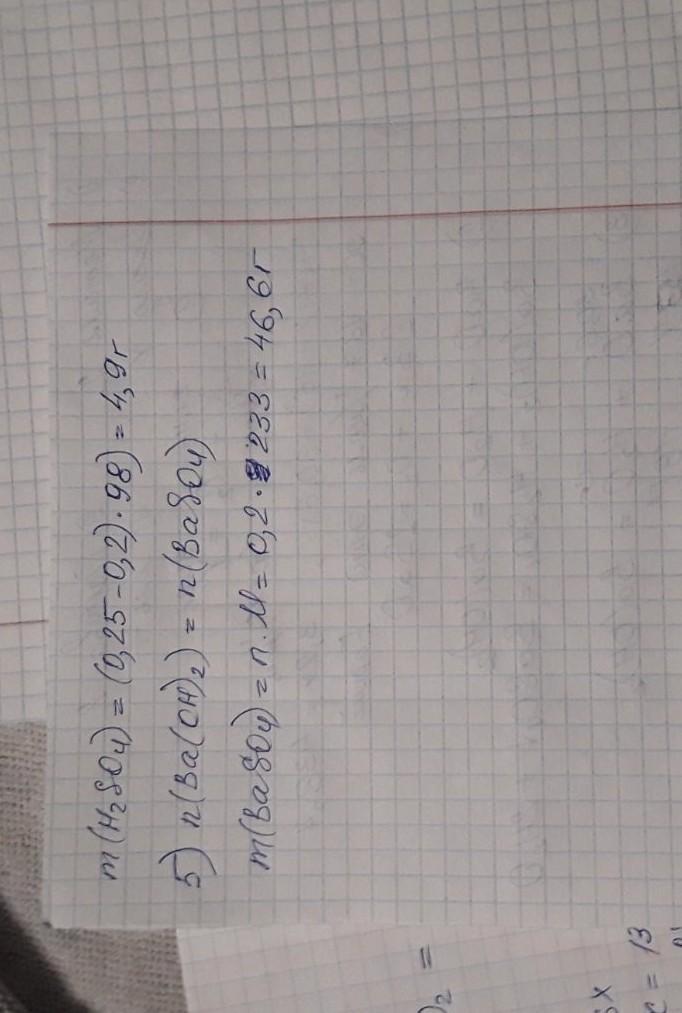 m(H₂SO₄) = (0,25-0,2)·98) = 4,9г
5) n(Ba(OH)₂) = n(BaSO₄)
m(BaSO₄) = n·M = 0,2·233 = 46,6г
)₂ =
x
= 13